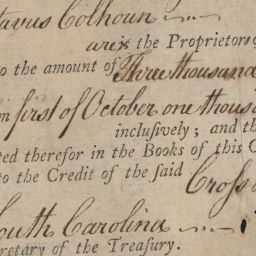 tavus Colhoun
are the Proprietors
o the amount of Three thousand
m first of October one thous
inclusively; and th
ted therefor in the Books of this O
to the Credit of the said Cross
outh Carolina
retary of the Treasury.